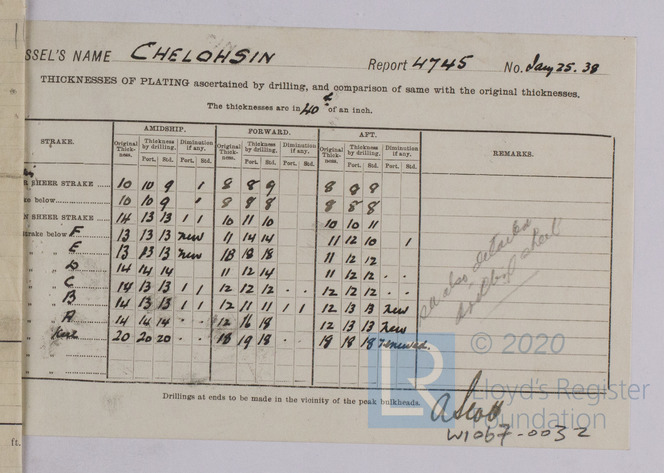 SSEL'S NAME CHELOHSIN Report 4745 No. Jany 25. 38
THICKNESSES OF PLATING ascertained by drilling, and comparison of same with the original thicknesses.
The thicknesses are in 40 of an inch.
STRAKE. AMIDSHIP. FORWARD. AFT. REMARKS.
Original Thick-ness. Thickness by drilling. Diminution if any. Original Thick-ness. Thickness by drilling. Diminution if any. Original Thick-ness. Thickness by drilling. Diminution if any.
Port. Std. Port. Std. Port. Std. Port. Std. Port. Std. Port. Std.
R SHEER STRAKE 10 10 9 1 8 8 9 8 9 9
ke below 10 10 9 ' 8 8 8 8 8 8
N SHEER STRAKE 14 13 13 1 1 10 11 10 10 10 11
trake below F 13 13 13 new 11 14 14 11 12 10 1
" " E 13 13 13 new 18 18 18 11 12 12
" " D 14 14 14 11 12 14 11 12 12 . .
" " C 14 13 13 1 1 12 12 12 . . 12 12 12 . .
" " B 14 13 13 1 1 12 11 11 1 1 12 13 13 new
" " A 14 14 14 . . 12 16 18 . . 12 13 13 new
" " Keel 20 20 20 . . 18 19 18 . . 18 18 18 renewed.
" "
" "
see also detailed
Drillings at ends to be made in the vicinity of the peak bulkheads.
A Scott
ft.
W1067-0032
LR
© 2020
Lloyd's Register
Foundation